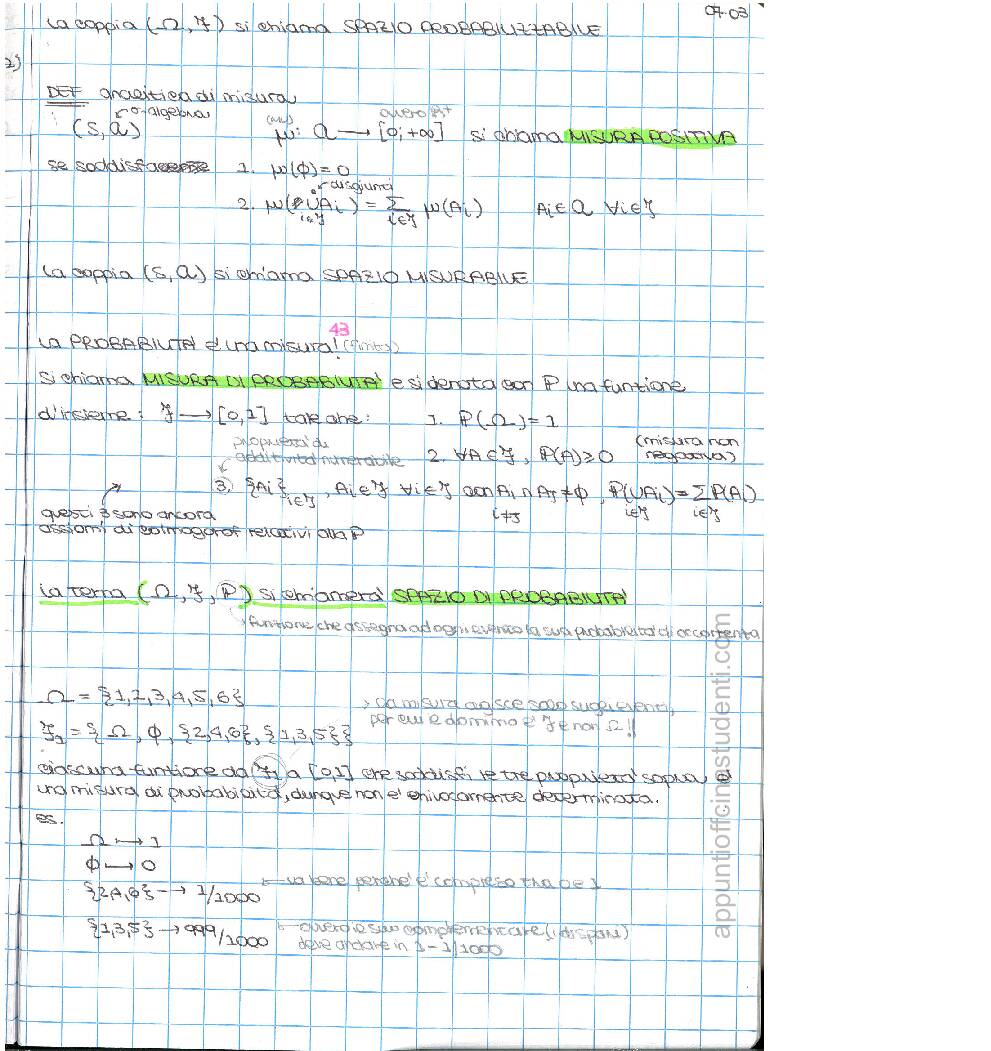 07-03
La coppia (Ω, F) si chiama SPAZIO PROBABILIZZABILE
2)
DEF analitica di misura
σ-algebra
(S, a) (mu) μ: a → [0; +∞] ovvero R+ si chiama MISURA POSITIVA
se soddisfa 1. μ(ϕ) = 0
disgiunti
2. μ(∪Ai) = Σ μ(Ai) Ai ∈ a ∀i∈J
i∈J i∈J
La coppia (S, a) si chiama SPAZIO MISURABILE
43
La PROBABILITA' è una misura! (finita)
Si chiama MISURA DI PROBABILITA' e si denota con P una funzione
d'insieme: F → [0,1] tale che: 1. P(Ω) = 1
proprietà di
additività numerabile 2. ∀A∈F, P(A) ≥ 0 (misura non negativa)
3. {Ai} i∈J, Ai∈F ∀i∈J con Ai ∩ AJ ≠ ϕ, P(∪Ai) = ΣP(Ai)
i≠J i∈J i∈J
questi 3 sono ancora
assiomi di Kolmogorof relativi alla P
La terna (Ω, F, P) si chiamerà SPAZIO DI PROBABILITA'
funzione che assegna ad ogni evento la sua probabilità di occorrenza
Ω = {1,2,3,4,5,6}
→ la misura agisce solo sugli eventi,
per cui il dominio è F e non Ω!!
F1 = {Ω, ϕ, {2,4,6}, {1,3,5}}
ciascuna funzione da F1 a [0,1] che soddisfi le tre proprietà sopra è
una misura di probabilità, dunque non è univocamente determinata.
es.
Ω → 1
ϕ → 0
{2,4,6} → 1/1000 ← va bene perché è compreso tra 0 e 1
{1,3,5} → 999/1000 ← ovvero il suo complementare (i dispari)
deve andare in 1 - 1/1000
appuntiofficinestudenti.com